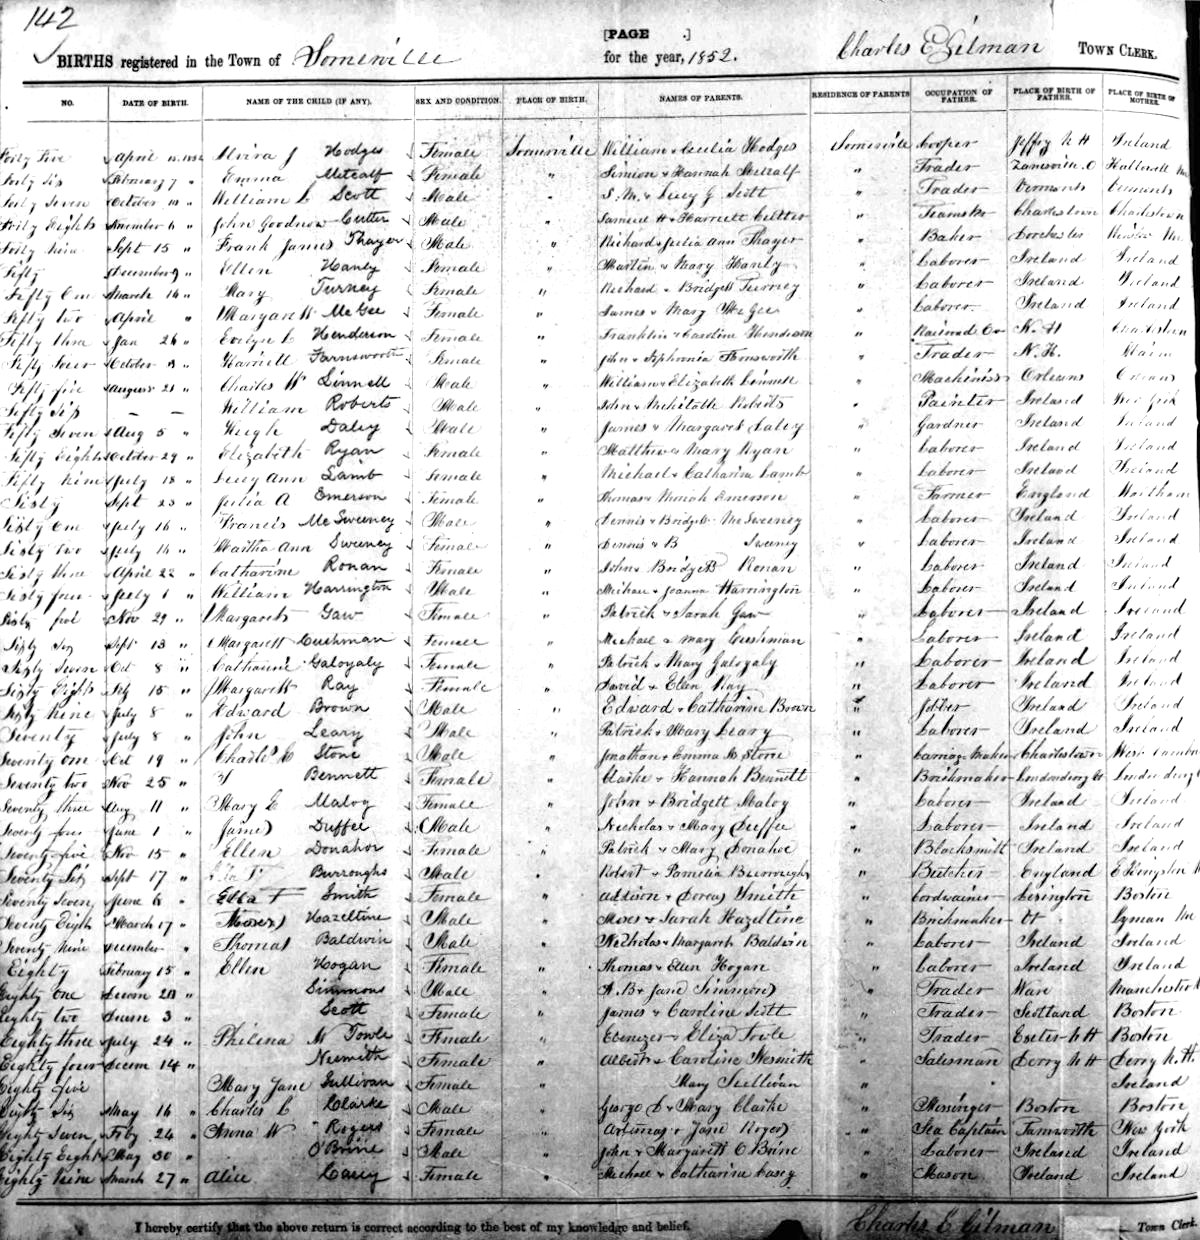 142
[PAGE .]
BIRTHS registered in the Town of Somerville for the year, 1852. Charles E Gilman TOWN CLERK.
NO. DATE OF BIRTH. NAME OF THE CHILD (IF ANY). SEX AND CONDITION. PLACE OF BIRTH. NAMES OF PARENTS. RESIDENCE OF PARENTS OCCUPATION OF FATHER. PLACE OF BIRTH OF FATHER. PLACE OF BIRTH OF MOTHER.
Forty Five April 1852 Alvira J Hodges Female Somerville William & Cecilia Hodges Somerville Cooper Jeffrey N H Ireland
Forty Six February 7 " Emma Metcalf Female " Simion & Hannah Metcalf " Trader Zanesville O Hallowell Me
Forty Seven October 10 " William L Scott Male " S. M. & Lucy J Scott " Trader Vermont Vermont
Forty Eight November 6 " John Goodnow Cutter Male " Samuel H & Harriett Cutter " Teamster Charlestown Charlestown
Forty Nine Sept 15 " Frank James Thayer Male " Richard & Julia Ann Thayer " Baker Dorchester Me
Fifty December 9 " Ellen Hanly Female " Martin & Mary Hanly " Laborer Ireland Ireland
Fifty One March 14 " Mary Turney Female " Richard & Bridgett Turney " Laborer Ireland Ireland
Fifty two April " Margarett McGee Female " James & Mary McGee " Laborer Ireland Ireland
Fifty three Jan 26 " Evelyn L Henderson Female " Franklin & Caroline Henderson " Railroad Co N. H Charlestown
Fifty Four October 3 " Harriett Farnsworth Female " John & Sophronia Farnsworth " Trader N. H. Maine
Fifty five August 21 " Charles W Linnell Male " William & Elizabeth Linnell " Machinist Orleans Orleans
Fifty Six — — William Roberts Male " John & Mehitable Roberts " Painter Ireland New York
Fifty Seven Aug 5 " Hugh Daley Male " James & Margaret Daley " Gardner Ireland Ireland
Fifty Eight October 29 " Elizabeth Ryan Female " Matthew & Mary Ryan " Laborer Ireland Ireland
Fifty Nine July 18 " Lucy Ann Lamb Female " Michael & Catharine Lamb " Laborer Ireland Ireland
Sixty Sept 23 " Julia A Emerson Female " Thomas & Emerson " Farmer England Waltham
Sixty One July 16 " Francis McSweeney Male " Dennis & Bridgett McSweeney " Laborer Ireland Ireland
Sixty two July 14 " Martha Ann Sweeney Female " Dennis & B Sweeney " Laborer Ireland Ireland
Sixty three April 22 " Catharine Ronan Female " John & Bridgett Ronan " Laborer Ireland Ireland
Sixty four July 1 " William Harrington Male " Michael & Joanna Harrington " Laborer Ireland Ireland
Sixty five Nov 29 " Margarett Gaw Female " Patrick & Sarah Gaw " Laborer Ireland Ireland
Sixty Six Sept 13 " Margarett Cushman Female " Michael & Mary Cushman " Laborer Ireland Ireland
Sixty Seven Oct 8 " Catharine Galogaly Female " Patrick & Mary Galogaly " Laborer Ireland Ireland
Sixty Eight 15 " Margarett Ray Female " David & Ellen Ray " Laborer Ireland Ireland
Sixty Nine July 8 " Edward Brown Male " Edward & Catharine Brown " Jobber Ireland Ireland
Seventy July 8 " John Leary Male " Patrick & Mary Leary " Laborer Ireland Ireland
Seventy One Oct 19 " Charles E Stone Male " Jonathan & Emma M Stone " Carriage Maker Charlestown West Cambr
Seventy two Nov 25 " Bennett Female " Clarke & Hannah Bennett " Brickmaker Londonderry Vt Londonderry
Seventy three Aug 11 " Mary E Maloy Female " John & Bridgett Maloy " Laborer Ireland Ireland
Seventy four June 1 " James Duffee Male " Nicholas & Mary Duffee " Laborer Ireland Ireland
Seventy five Nov 15 " Ellen Donahoe Female " Patrick & Mary Donahoe " Blacksmith Ireland Ireland
Seventy Six Sept 17 " Burroughs Male " Robert & Pamelia Burroughs " Butcher England E Kingston
Seventy Seven June 6 " Ella F Smith Female " Addison & Dorcas Smith " Cordwainer Lexington Boston
Seventy Eight March 17 " Moses Hazeltine Male " Moses & Sarah Hazeltine " Brickmaker Vt Lyman Me
Seventy Nine December " Thomas Baldwin Male " Nicholas & Margaret Baldwin " Laborer Ireland Ireland
Eighty February 15 " Ellen Hogan Female " Thomas & Ellen Hogan " Laborer Ireland Ireland
Eighty One Decem 20 " Simmons Male " W. B & Jane Simmons " Trader Ware Manchester
Eighty two Decem 3 " Scott Female " James & Caroline Scott " Trader Scotland Boston
Eighty three July 24 " Philena M Towle Female " Ebenezer & Eliza Towle " Trader Exeter N H Boston
Eighty four Decem 14 " Nesmith Female " Albert & Caroline Nesmith " Salesman Derry N H Derry N. H.
Eighty five Mary Jane Sullivan Female " Mary Sullivan " " Ireland
Eighty Six May 16 " Charles L Clarke Male " George L & Mary Clarke " Messinger Boston Boston
Eighty Seven Feby 24 " Anna W Rogers Female " Artimas & Jane Rogers " Sea Captain Tamworth New York
Eighty Eight May 30 " O'Brine Male " John & Margarett O'Brine " Laborer Ireland Ireland
Eighty Nine March 27 " Alice Casey Female " Michael & Catharine Casey " Mason Ireland Ireland
I hereby certify that the above return is correct according to the best of my knowledge and belief. Charles E Gilman Town Clerk.